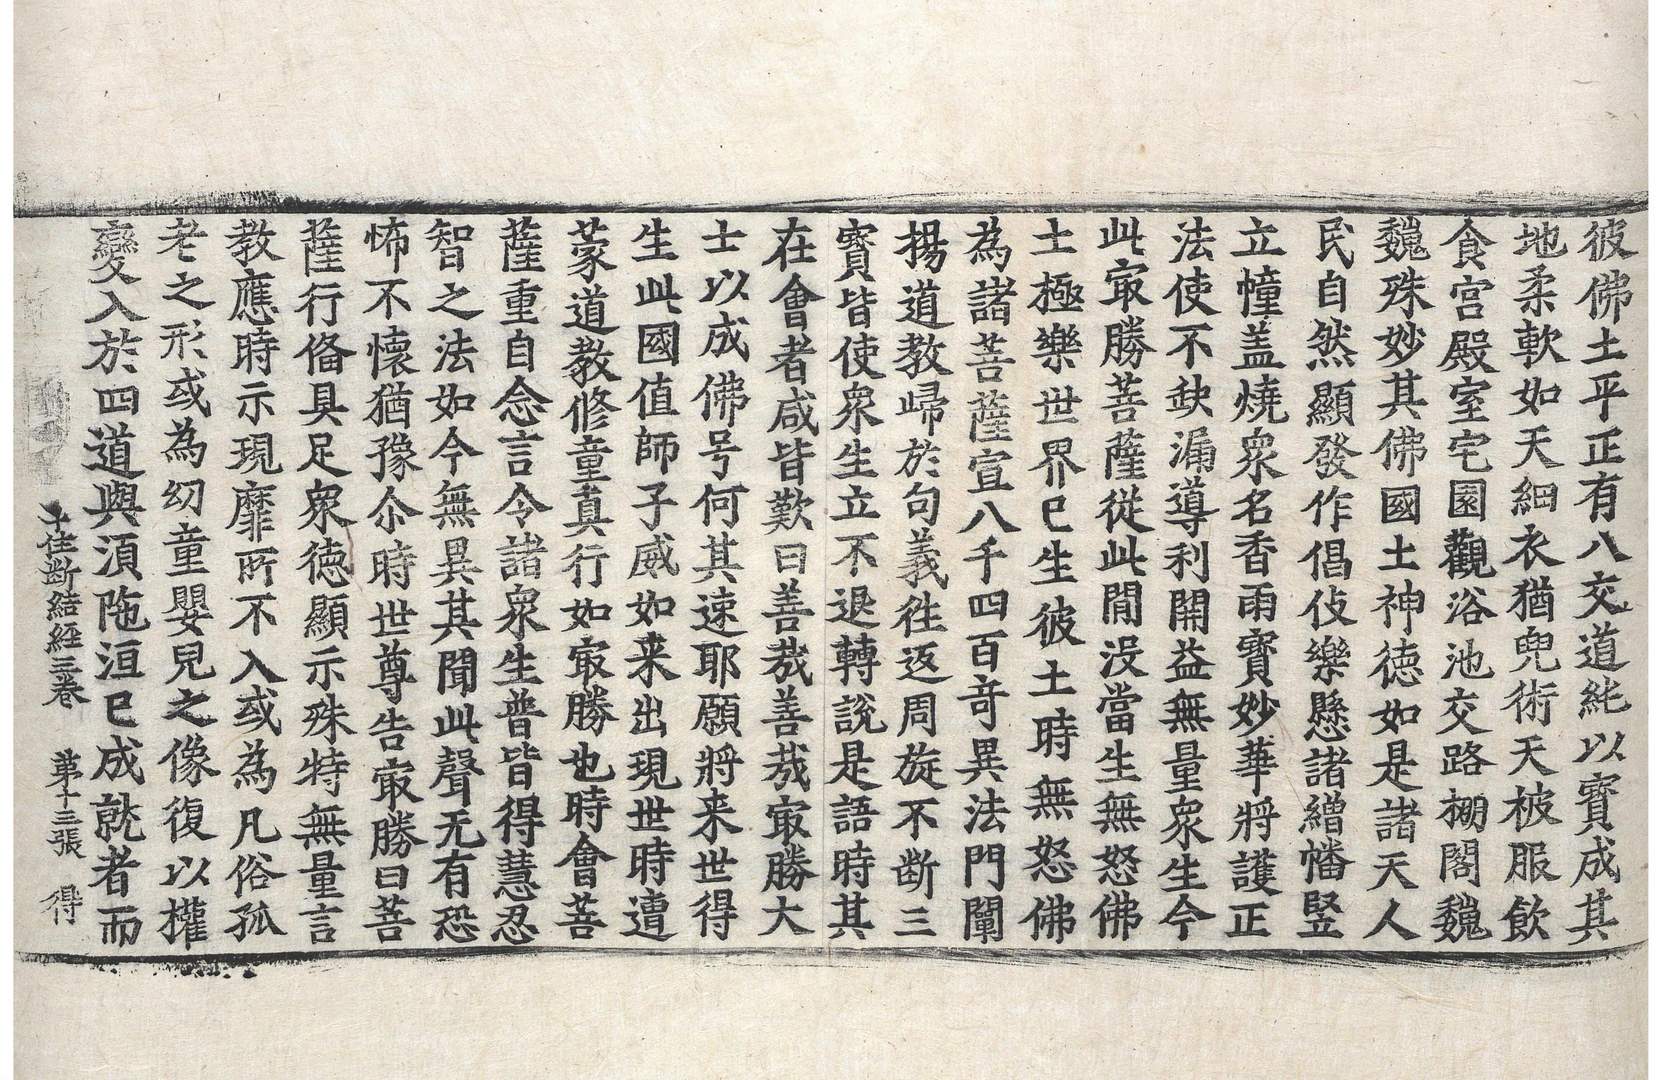 彼佛土平正有八交道純以寳成其
地柔軟如天細衣猶兜術天被服飲
食宮殿室宅園觀浴池交路棚閣巍
巍殊妙其佛國土神徳如是諸天人
民自然顯發作倡伎樂懸諸繒幡竪
立幢盖燒衆名香雨寳妙華將護正
法使不缺漏導利開益無量衆生今
此㝡勝菩薩從此閒没當生無怒佛
土極樂世界已生彼土時無怒佛
為諸菩薩宣八千四百竒異法門闡
揚道教歸於句義往返周旋不断三
寳皆使衆生立不退轉說是語時其
在會者咸皆歎曰善㢤善㢤㝡勝大
士以成佛号何其速耶願將来世得
生此國值師子威如来出現世時遭
蒙道教修童真行如㝡勝也時會菩
薩重自念言今諸衆生普皆得慧忍
智之法如今無異其聞此聲无有恐
怖不懷猶豫尒時世尊告㝡勝曰菩
薩行俻具足衆徳顯示殊特無量言
教應時示現靡所不入或為凡俗孤
老之形或為幼童嬰兒之像復以權
變入於四道與湏陁洹已成就者而
十住断結經三卷 第十三張 得